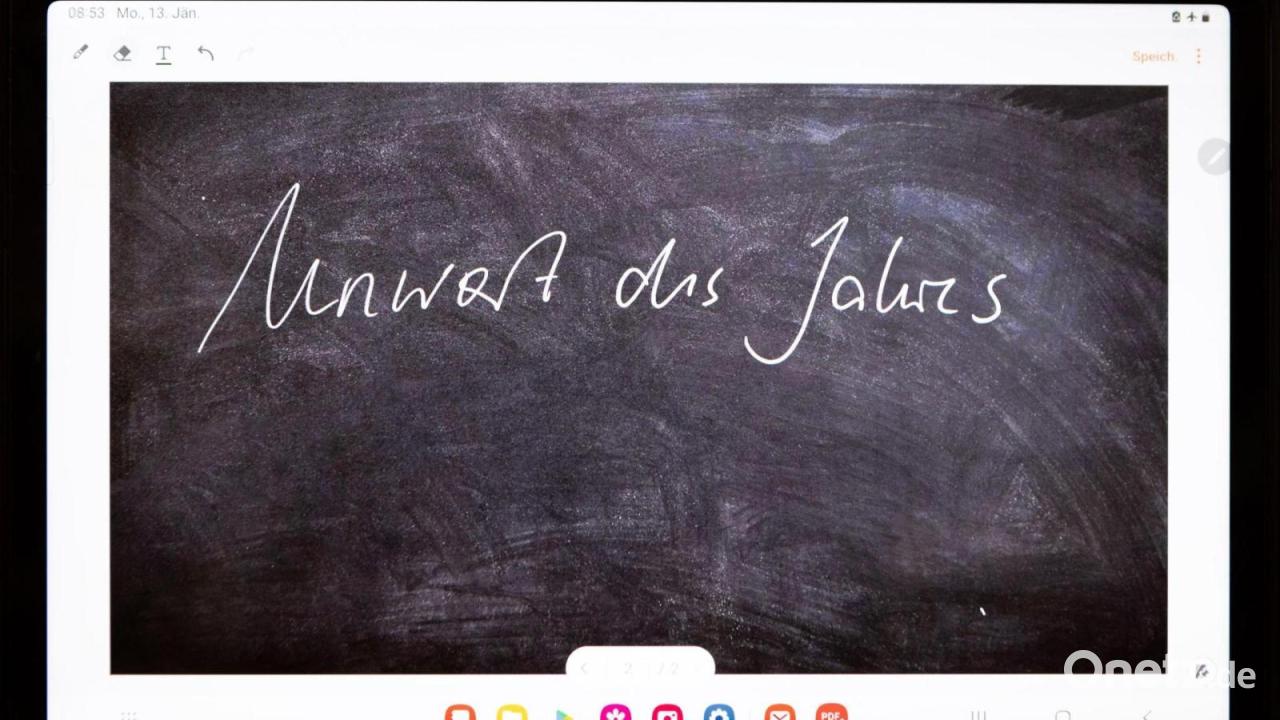 08:53 Mo., 13. Jän.
T
Speich.
Unwort des Jahres
2 / 2
PDF
Onetz.de